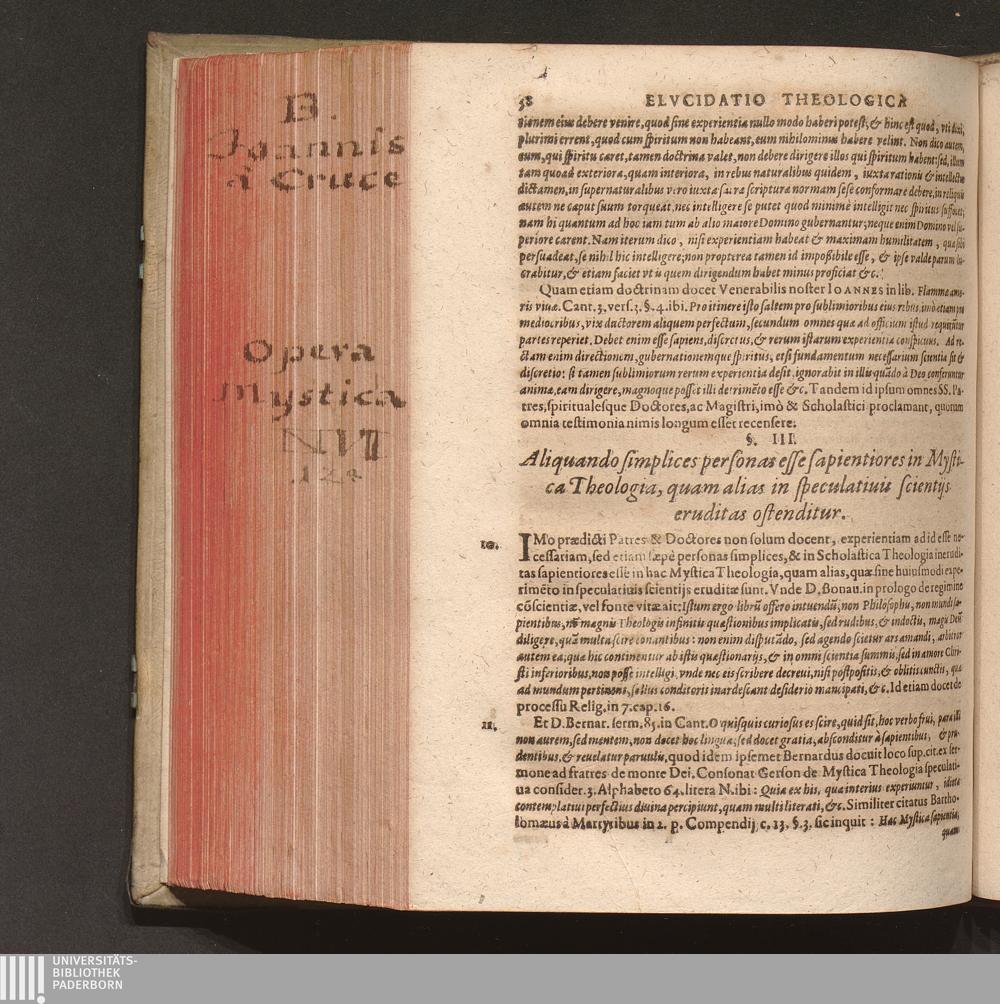 B.
Joannis
à Cruce
Opera
Mystica
NVI
124
58 ELVCIDATIO THEOLOGICA
sionem eius debere venire, quod sine experientia nullo modo haberi potest, & hinc est quod, vti dixi,
plurimi errent, quod cum spiritum non habeant, eum nihilominus habere velint. Non dico autem,
eum, qui spiritu caret, tamen doctrina valet, non debere dirigere illos qui spiritum habent: sed, illum
tam quoad exteriora, quam interiora, in rebus naturalibus quidem, iuxta rationis & intellectus
dictamen, in supernaturalibus vero iuxta sacra scriptura normam sese conformare debere, in reliquis
autem ne caput suum torqueat, nec intelligere se putet quod minimè intelligit nec spiritus suffocet;
nam hi quantum ad hoc iam tum ab alio maiore Domino gubernantur; neque enim Domino vel su-
periore carent. Nam iterum dico, nisi experientiam habeat & maximam humilitatem, qua sibi
persuadeat, se nihil hic intelligere; non propterea tamen id impoßibile esse, & ipse valde parum lu-
crabitur, & etiam faciet vt is quem dirigendum habet minus proficiat &c.
Quam etiam doctrinam docet Venerabilis noster IOANNES in lib. Flamma amo-
ris viuæ. Cant. 3. vers. 3. §. 4. ibi. Pro itinere isto saltem pro sublimioribus eius rebus, imò etiam pro
mediocribus, vix ductorem aliquem perfectum, secundum omnes qua ad officium istud requirūtur
partes reperiet. Debet enim esse sapiens, discretus, & rerum istarum experientia conspicuus. Ad re-
ctam enim directionem, gubernationemque spiritus, etsi fundamentum necessarium scientia sit &
discretio: si tamen sublimiorum rerum experientia desit, ignorabit in illis quādo à Deo conferuntur
animæ, eam dirigere, magnoque posset illi detrimēto esse &c. Tandem id ipsum omnes SS. Pa-
tres, spiritualesque Doctores, ac Magistri, imò & Scholastici proclamant, quorum
omnia testimonia nimis longum esset recensere.
§. III.
Aliquando simplices personas esse sapientiores in Mysti-
ca Theologia, quam alias in speculatiuis scientijs
eruditas ostenditur.
10. IMo prædicti Patres & Doctores non solum docent, experientiam ad id esse ne-
cessariam, sed etiam sæpè personas simplices, & in Scholastica Theologia inerudi-
tas sapientiores esse in hac Mystica Theologia, quam alias, quæ sine huiusmodi expe-
rimēto in speculatiuis scientijs eruditæ sunt. Vnde D. Bonau. in prologo de regimine
cōscientiæ, vel fonte vitæ ait: Istum ergo librū offero intuendū, non Philosophis, non mundi sa-
pientibus, nō magnis Theologis infinitis quæstionibus implicatis, sed rudibus, & indoctis, magis Deū
diligere, quā multa scire conantibus: non enim disputādo, sed agendo scietur ars amandi, arbitror
autem ea, quæ hic continentur ab istis quæstionarijs, & in omni scientia summis, sed in amore Chri-
sti inferioribus, non posse intelligi, vnde nec eis scribere decreui, nisi postpositis, & oblitis cunctis, qua
ad mundum pertinent, solius conditoris inardescant desiderio mancipati, &c. Id etiam docet de
processu Relig. in 7. cap. 16.
11. Et D. Bernar. serm. 85. in Cant. O quisquis curiosus es scire, quid sit, hoc verbo frui, para illi
non aurem, sed mentem, non docet hoc lingua, sed docet gratia, absconditur à sapientibus, & pru-
dentibus, & reuelatur paruulis, quod idem ipsemet Bernardus docuit loco sup. cit. ex ser-
mone ad fratres de monte Dei. Consonat Gerson de Mystica Theologia speculati-
ua consider. 3. Alphabeto 64. litera N. ibi: Quia ex his, qua interius experiuntur, idiota
contemplatiui perfectius diuina percipiunt, quam multi literati, &c. Similiter citatus Bartho-
lomæus à Martyribus in 2. p. Compendij c. 13. §. 3. sic inquit: Hac Mystica sapientia,
quam
UNIVERSITÄTS-
BIBLIOTHEK
PADERBORN